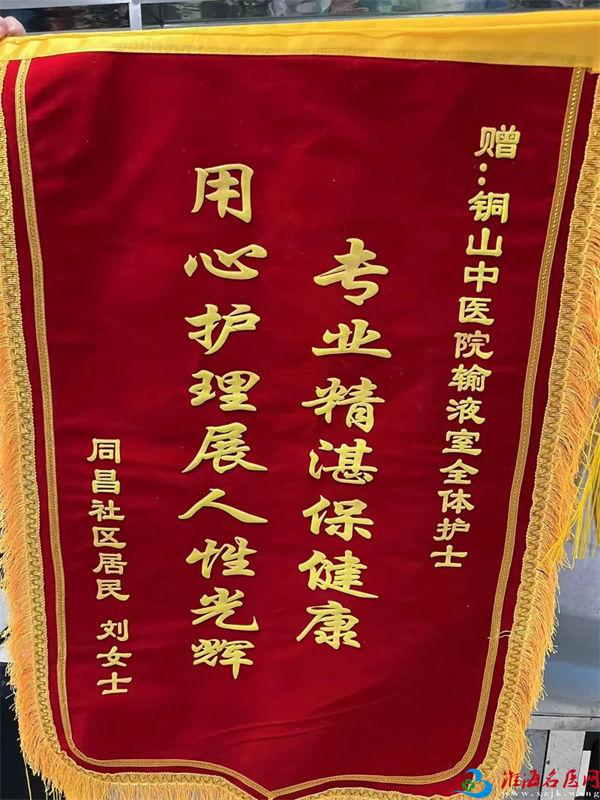 赠:铜山中医院输液室全体护士
专业精湛保健康
用心护理展人性光辉
同昌社区居民 刘女士
淮海名医网
www.xzjk.wang